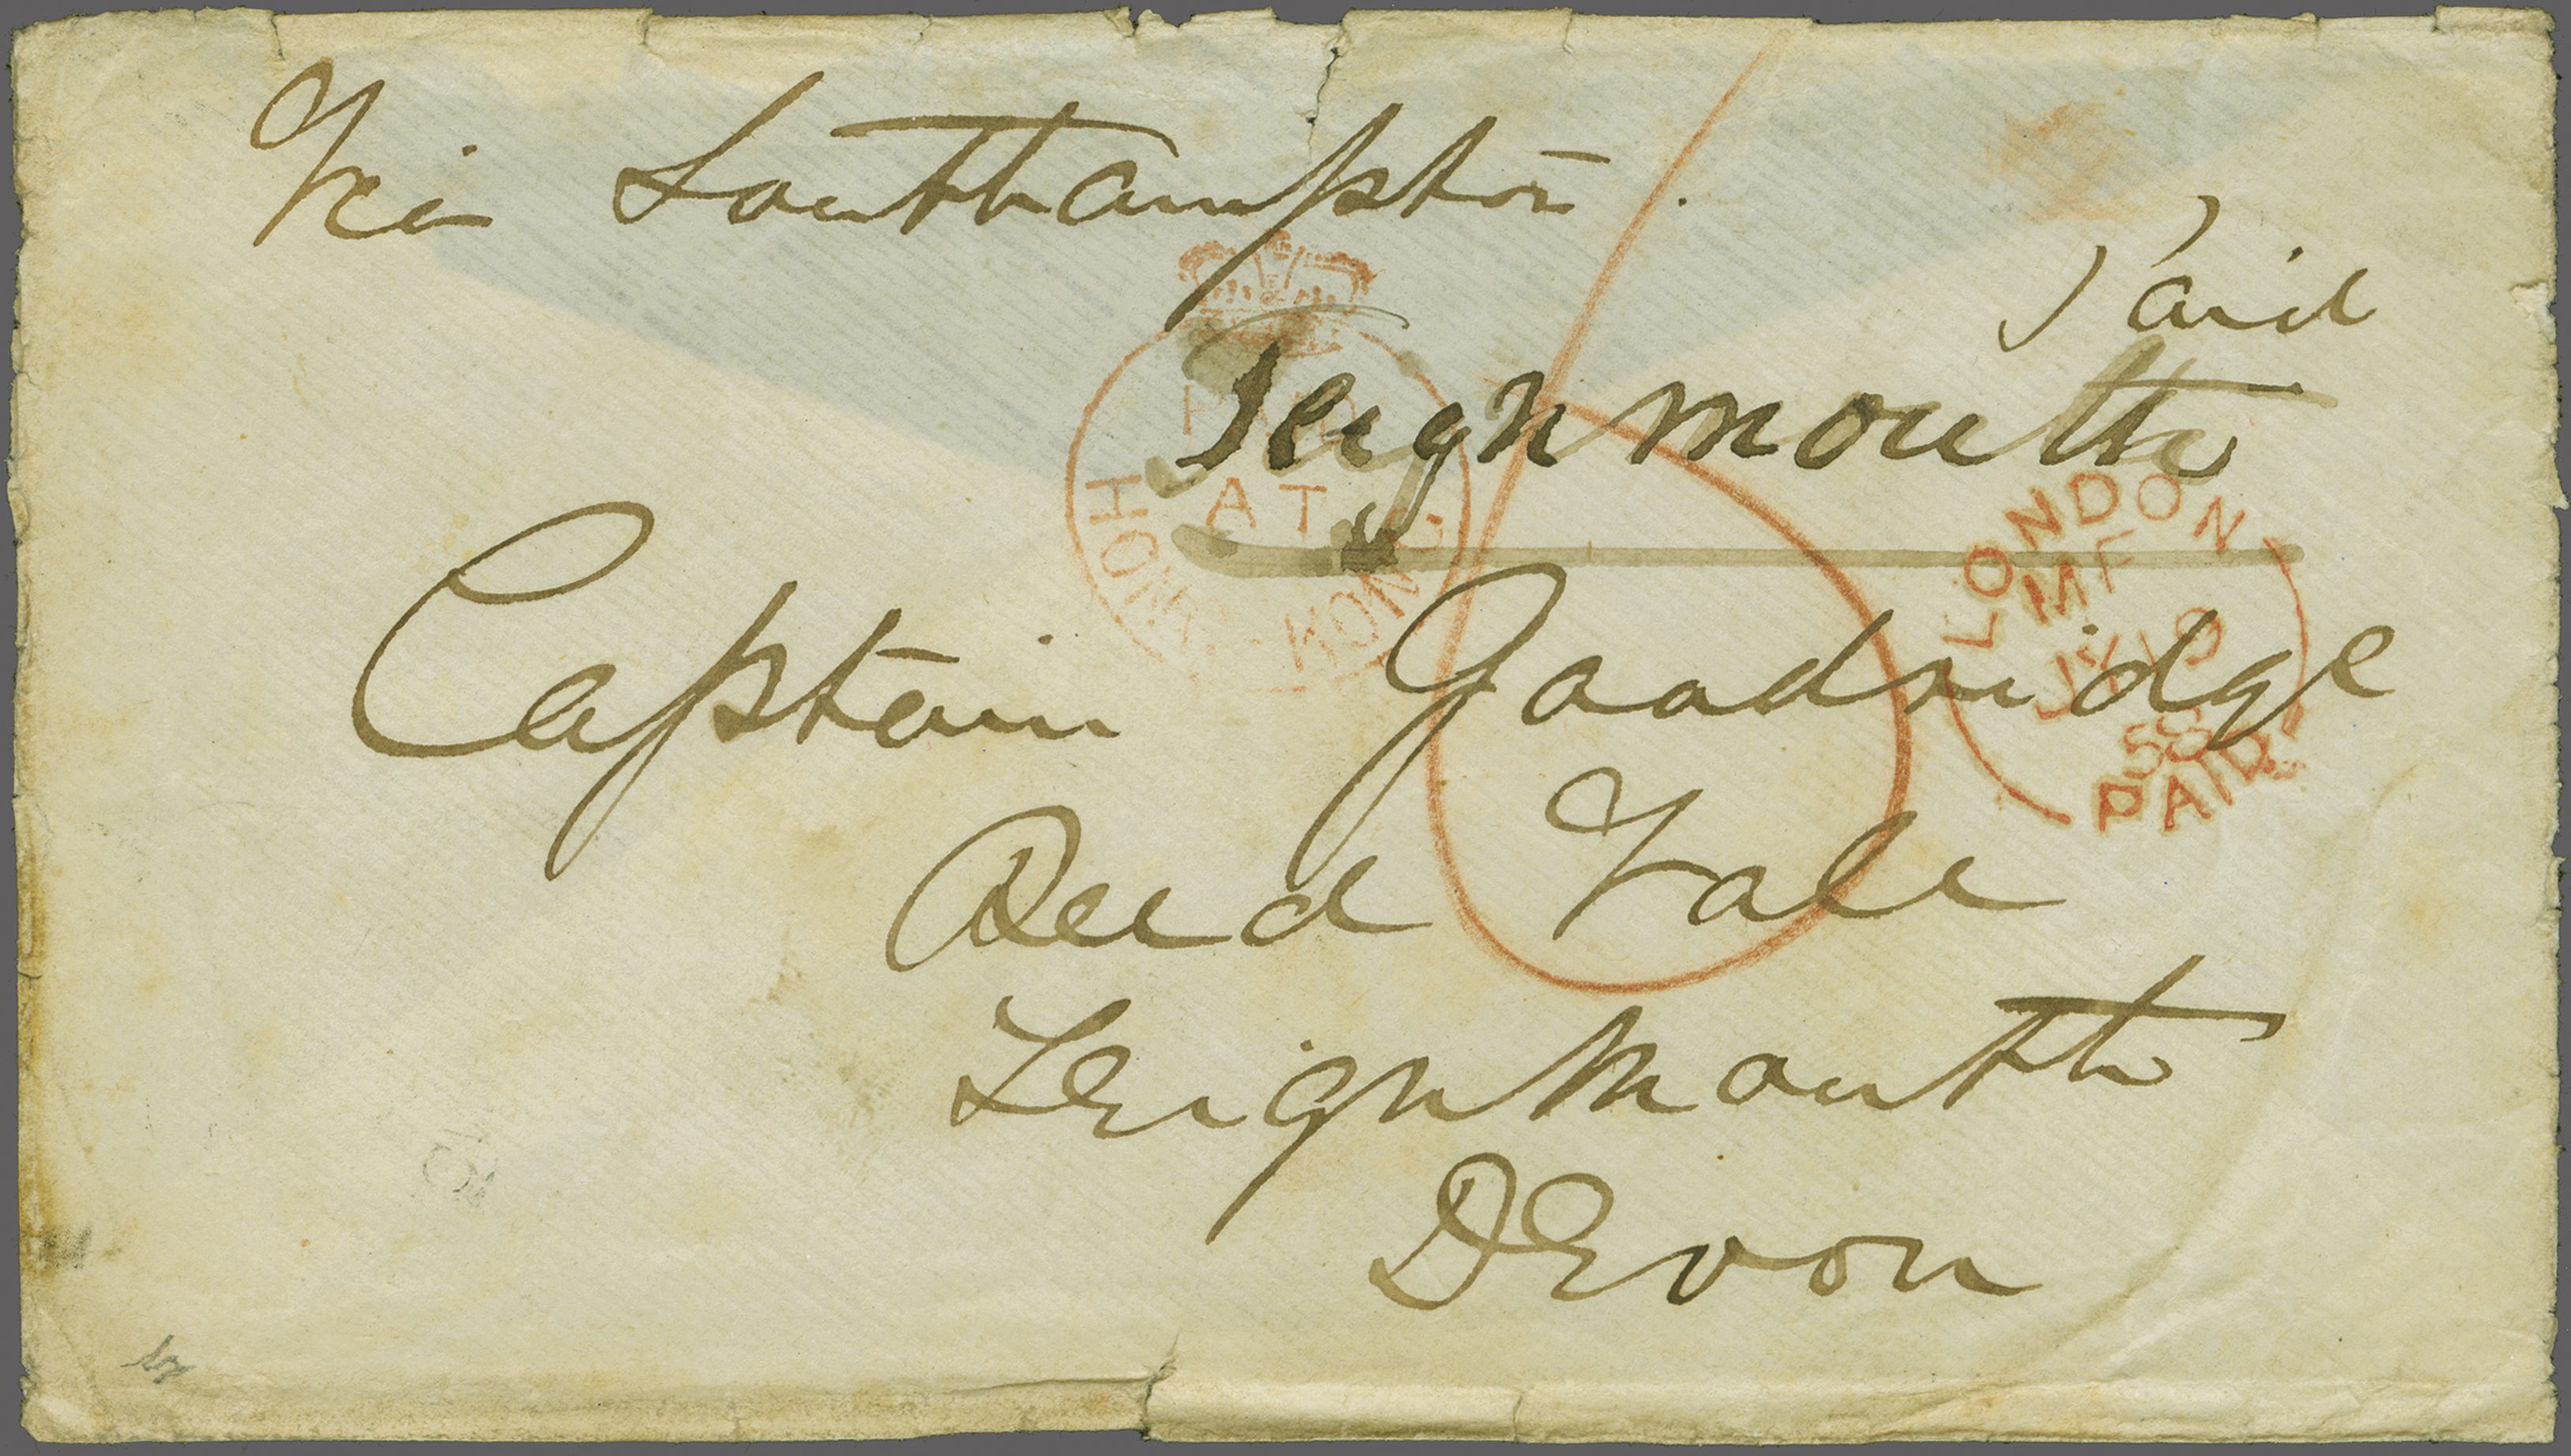 Via Southampton.
Paid
Teignmouth
PAID
AT
HONG-KONG
LONDON
MF
JY 19
58
PAID
6
Captain Goodridge
Reed Vale
Teignmouth
Devon